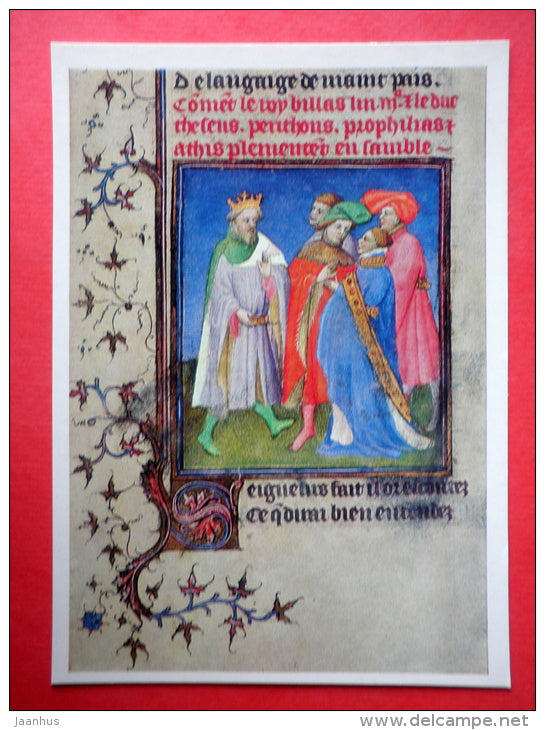 De langaige de maint pais.
Com̄et le roy billas lui m̄e ⁊ le duc
theseus. perithous. prophilias ⁊
athis plementēt en samble
Seigneurs fait il or escoutez
Ce q̄ dirai bien entendez
Jaanhus
www.delcampe.net